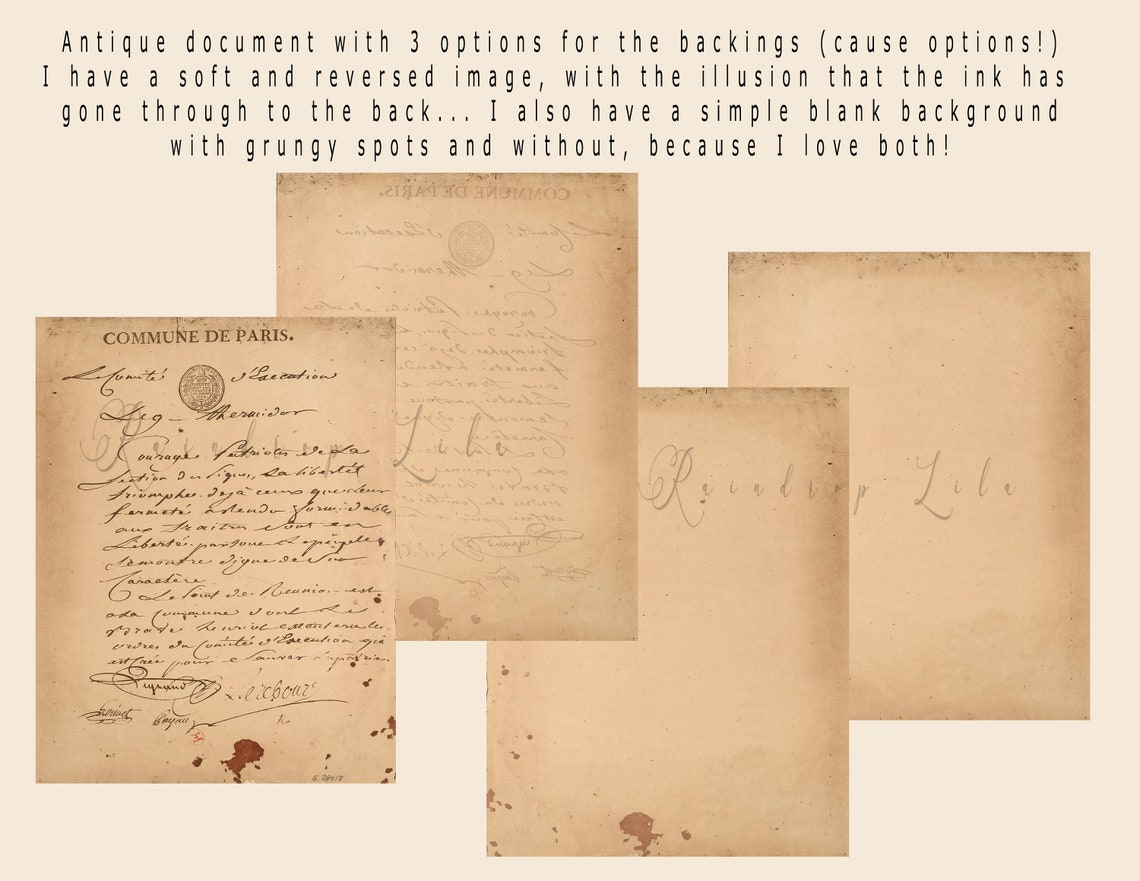 Antique document with 3 options for the backings (cause options!)
I have a soft and reversed image, with the illusion that the ink has
gone through to the back... I also have a simple blank background
with grungy spots and without, because I love both!
COMMUNE DE PARIS.
COMMUNE DE PARIS.
Le Comité d'Execution
Courage Patriotes de La
Section des Piques, La liberté
triomphe. deja ceux que leur
fermeté a rendu formidables
aux traitres sont en
Liberté partout
se montre digne de Son
Caractère
Le Point de Reunion est
a la Commune dont Le
brave henriot executera les
ordres du Comité d'Execution qui
est créé pour Sauver la patrie.
Legrand Lerebours
Payan
G. 28018
Raindrop Lila
Raindrop Lila